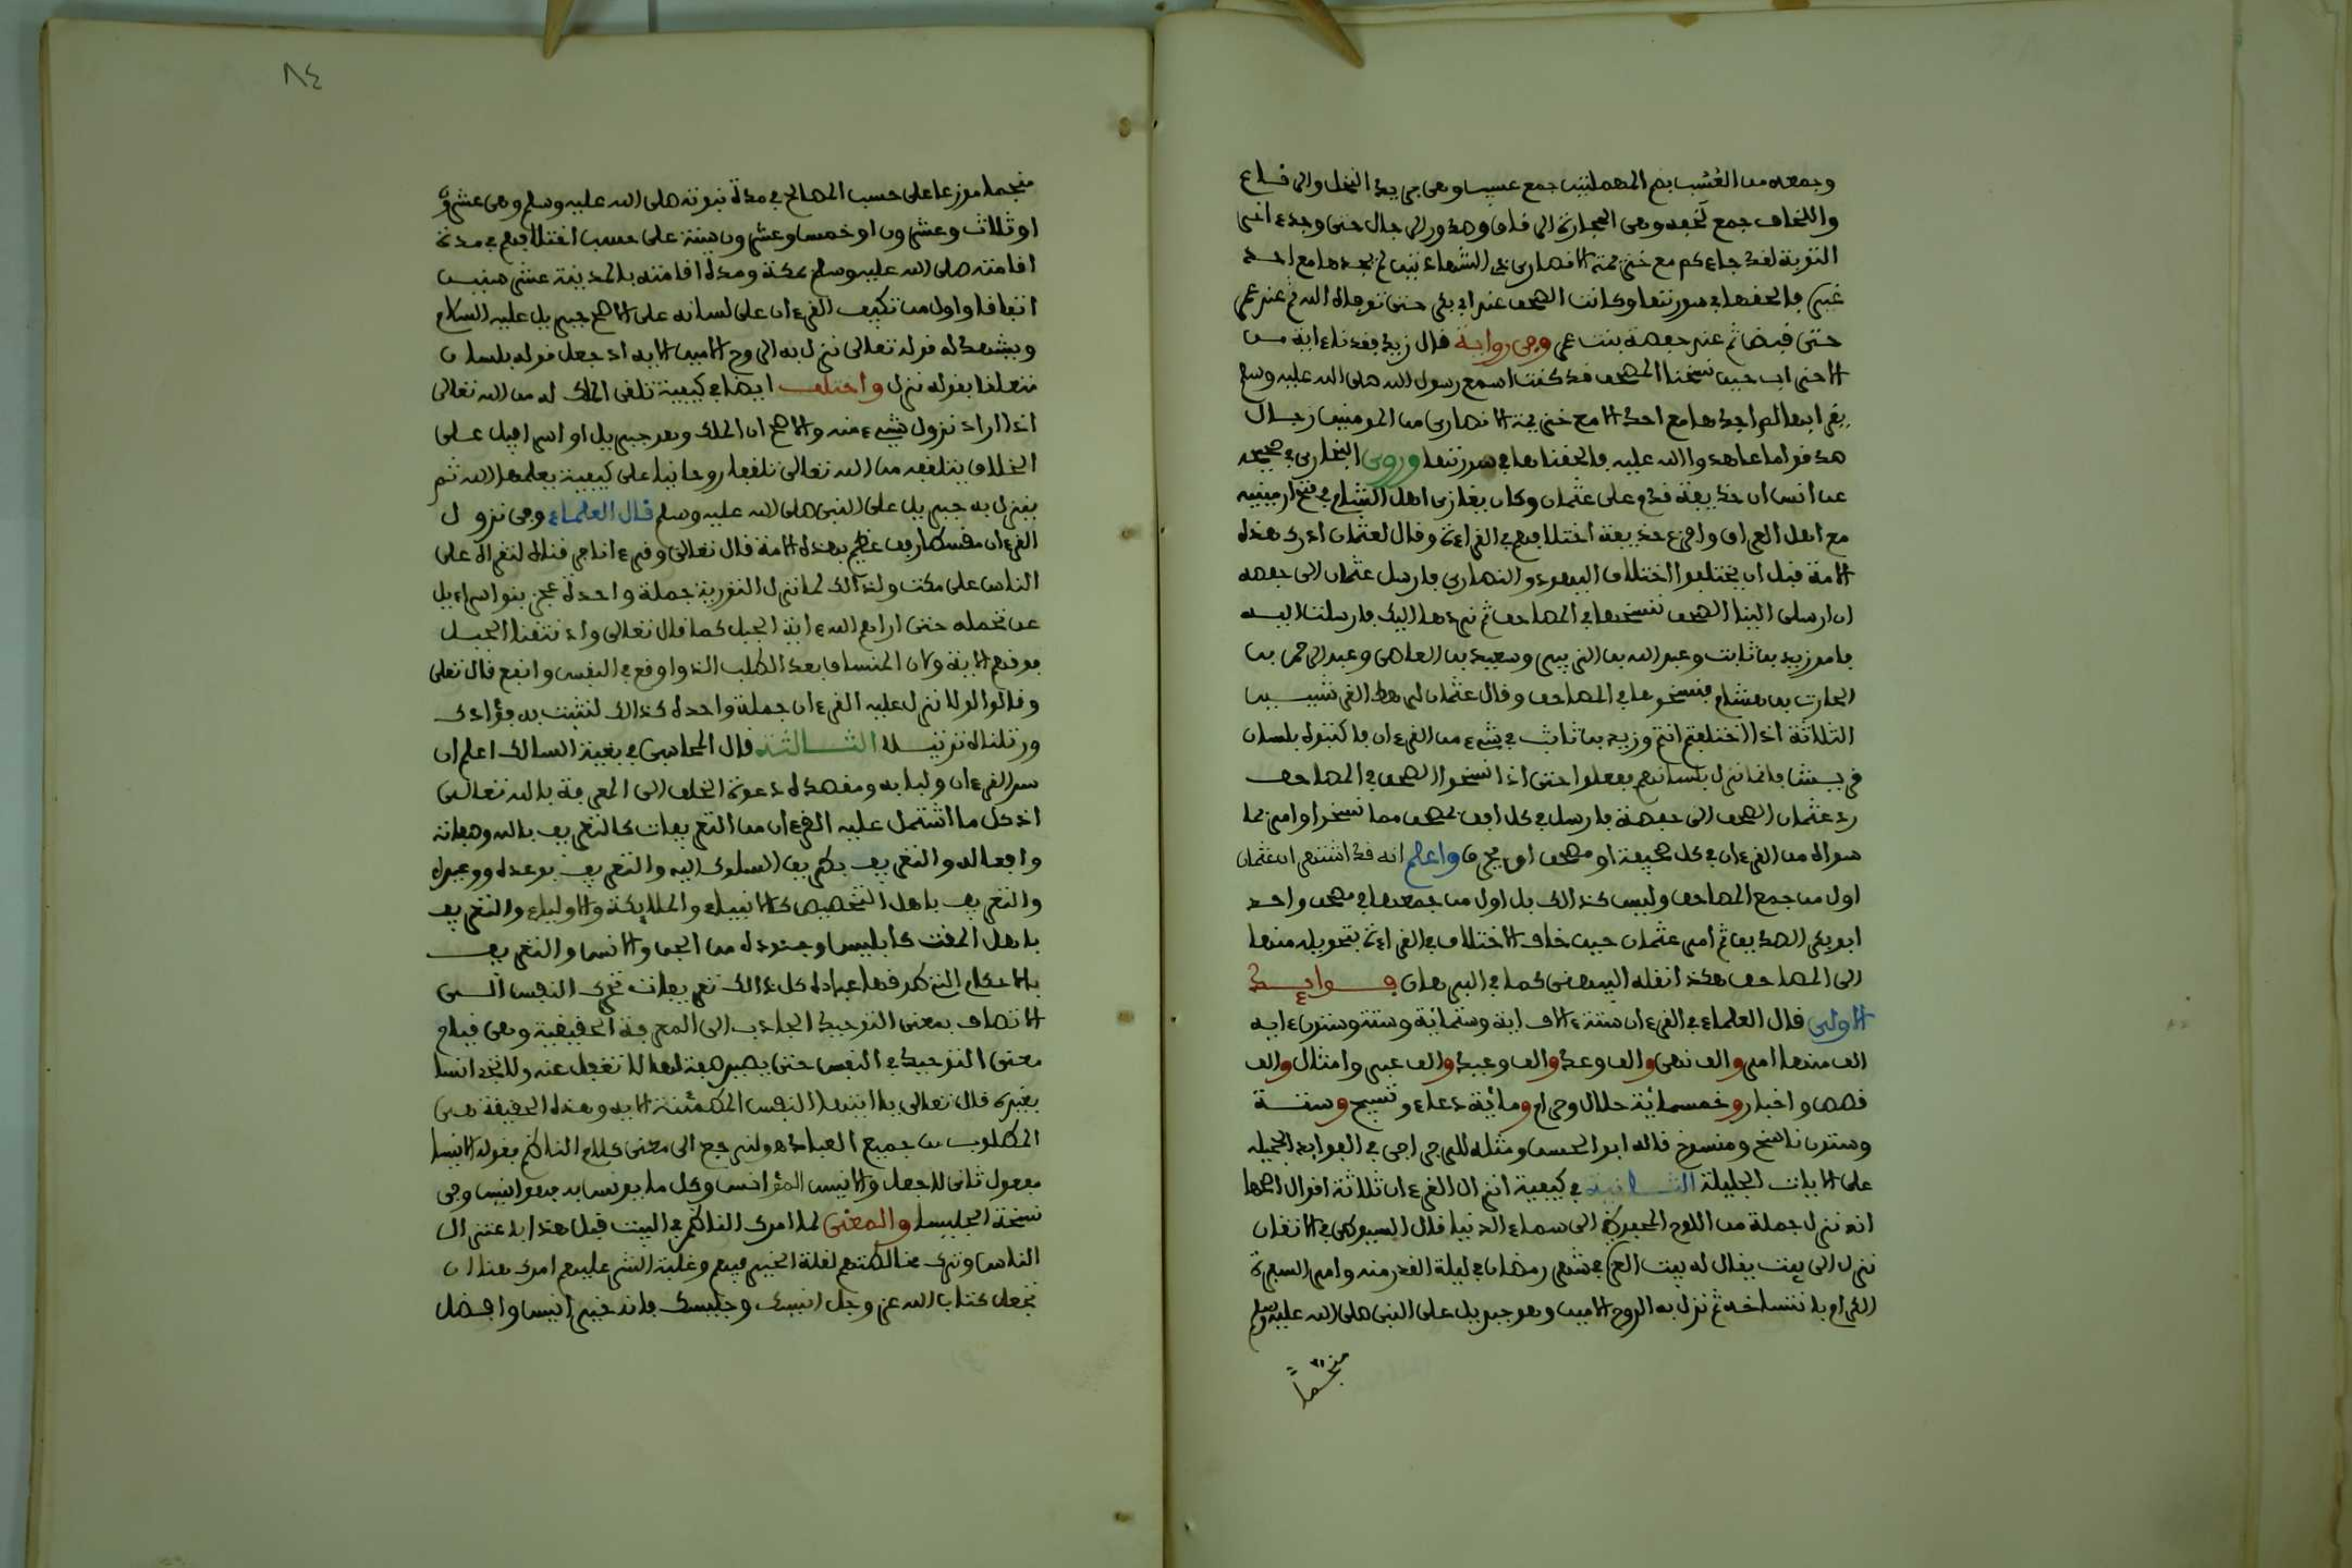 وجمعه من العُسُب بضم المهملتين جمع عسيب وهى جريد النخل والرقاع
واللخاف جمع لَخفه وهى الحجارة الرقاق وصدور الرجال حتى وجدت اخر
التوبة لقد جاءكم مع خزيمة الانصارى ذى الشهادتين لم نجدها مع احد
غيره فالحقها فى سورتها وكانت الصحف عند ابى بكر حتى توفاه الله ثم عند عمر
حتى قبض ثم عند حفصة بنت عمر وفى رواية قال زيد فقدت ءاية من
الاحزاب حين نسخنا المصحف قد كنت اسمع رسول الله صلى الله عليه وسلم
يقرأ بها لم اجدها مع احد الا مع خزيمة الانصارى من المومنين رجال
صدقوا ما عاهدوا الله عليه فالحقناها فى سورتها وروى البخارى فى صحيحه
عن انس ان حذيفة قدم على عثمان وكان يغازى اهل الشام فى فتح ارمينيه
مع اهل العراق وافزع حذيفة اختلافهم فى القراءة وقال لعثمان ادرك هذه
الامة قبل ان يختلفوا اختلاف اليهود والنصارى فارسل عثمان الى حفصه
ان ارسلى الينا الصحف ننسخها فى المصاحف ثم نردها اليك فارسلت اليه
فامر زيد بن ثابت وعبد الله بن الزبير وسعيد بن العاصى وعبد الرحمن بن
الحارث بن هشام فنسخوها فى المصاحف وقال عثمان لرهط القرشيين
الثلاثة اذا اختلفتم انتم وزيد بن ثابت فى شىء من القرءان فاكتبوه بلسان
قريش فانما نزل بلسانهم ففعلوا حتى اذا نسخوا الصحف فى المصاحف
رد عثمان الصحف الى حفصة فارسل فى كل افق بمصحف مما نسخوا وامر بما
سواه من القرءان فى كل صحيفة او مصحف ان يحرق واعلم انه قد اشتهر ان عثمان
اول من جمع المصاحف وليس كذالك بل اول من جمعها فى مصحف واحد
ابو بكر الصديق ثم امر عثمان حين خاف الاختلاف فى القراءة بتحويله منها
الى المصاحف هكذا نقله البيهقى كما فى البرهان فوايد
الاولى قال العلماء فى القرءان ستة ءالاف اية وستماية وستة وستون ءايه
الف منها امر والف نهى والف وعد والف وعيد والف عبر وامثال والف
قصص واخبار وخمسمائة حلال وحرام ومائة دعاء وتسبيح وستة
وستون ناسخ ومنسوخ قاله ابو الحسن ومثله للجراجى فى الفوايد الجميله
على الايات الجليلة الثانية فى كيفية انزال القرءان ثلاثة اقوال اصحها
انه نزل جملة من اللوح المحفوظ الى سماء الدنيا قال السيوطى فى الاتقان
نزل الى بيت يقال له بيت العزة فى شهر رمضان فى ليلة القدر منه وامر السفرة
الكرام بانتساخه ثم نزل به الروح الامين وهو جبريل على النبى صلى الله عليه وسلم
منجماً
٨٤
منجما موزعا على حسب المصالح فى مدة نبوته صلى الله عليه وسلم وهى عشرون
او ثلاث وعشرون او خمس وعشرون سنة على حسب اختلافهم فى مدة
اقامته صلى الله عليه وسلم بمكة ومدة اقامته بالمدينة عشر سنين
اتفاقا واول من تكيف القرءان على لسانه على الاصح جبريل عليه السلام
ويشهد له قوله تعالى نزل به الروح الامين الايه اذ جعل قوله بلسان
متعلقا بقوله نزل واختلف ايضا فى كيفية تلقى الملك له من الله تعالى
اذا اراد نزول شىء منه والاصح ان الملك وهو جبريل او اسرافيل على
الخلاف يتلقفه من الله تعالى تلقفا روحانيا على كيفية يعلمها الله ثم
ينزل به جبريل على النبى صلى الله عليه وسلم قال العلماء وفى نزول
القرءان مقسطا رفق عظيم بهذه الامة قال تعالى وقرءانا فرقناه لتقراه على
الناس على مكث ولذالك لما نزل التورية جملة واحدة عجز بنوا اسراءيل
عن تحمله حتى اراهم الله ءاية الجبل كما قال تعالى واذ نتقنا الجبل
فوقهم الاية وكان المنساق بعد الطلب الذ واوقع فى النفس وانفع قال تعلى
وقالوا لولا نزل عليه القرءان جملة واحدة كذالك لنثبت به فؤادك
ورتلناه ترتيلا الثالثة قال المحاسبى فى بغية السالك اعلم ان
سر القرءان ولبابه ومقصده دعوة الخلق الى المعرفة بالله تعالى
اذ كل ما اشتمل عليه القرءان من التعريفات كالتعريف بالله وصفاته
وافعاله والتعريف بطريق السلوك اليه والتعريف بوعده ووعيده
والتعريف باهل التخصيص كالانبياء والملايكة والاولياء والتعريف
باهل المقت كابليس وجنوده من الجن والانس والتعريف
بالاحكام التى كلف بها عباده كل ذالك تعريفات تحرك النفس الى
الاتصاف بمعنى التوحيد الجاذب الى المعرفة الحقيقية وهى قيام
معنى التوحيد فى النفس حتى يصير صفة لها لا تغفل عنه ولا تجد انسا
بغيره قال تعالى يا ايتها النفس المطمئنة الايه وهذه الحقيقة هى
المطلوب من جميع العباد ولنرجع الى معنى كلام الناظم فقوله انيسا
مفعول ثانى لاجعل والانيس المؤانس وكل ما يونس به فهو انيس وفى
نسخة الجليس والمعنى لما امرك الناظم فى البيت قبل هذا باعتزال
الناس وترك مخالطتهم لقلة الخير فيهم وغلبة الشر عليهم امرك هنا ان
تجعل كتاب الله عز وجل انيسك وجليسك فانه خير انيس وافضل